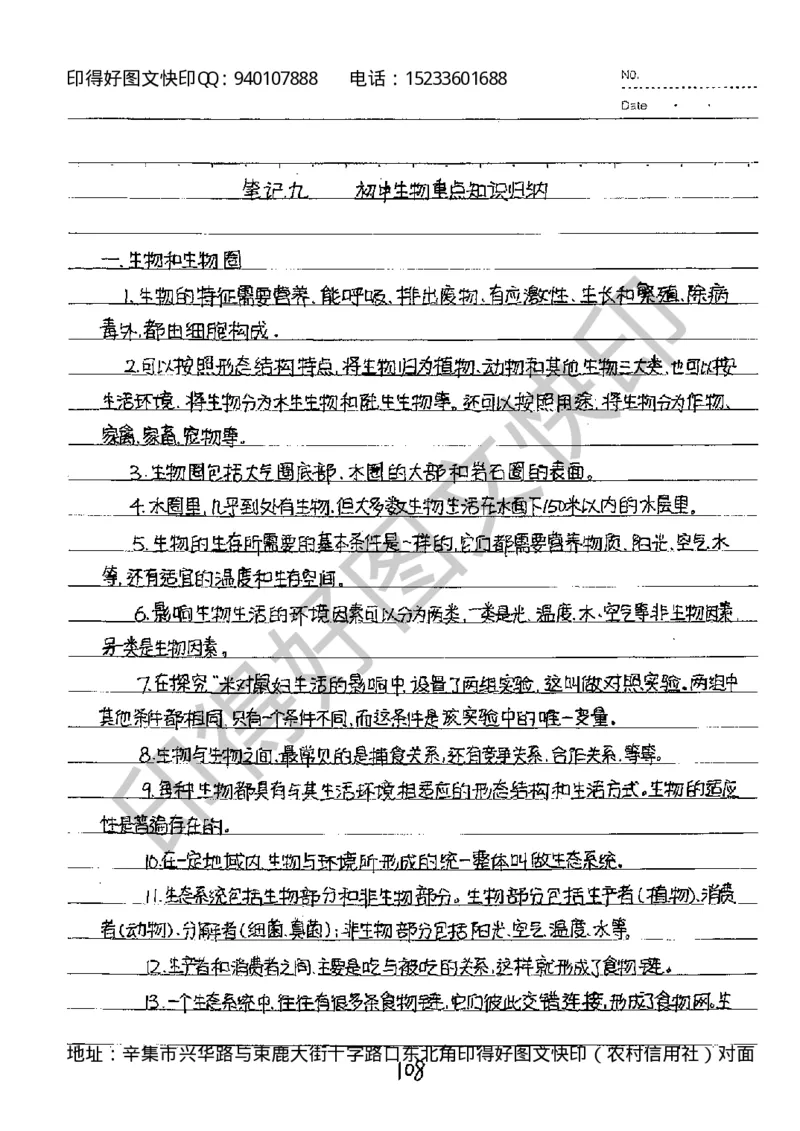 印得好图文快印QQ：940107888 电话：15233601688
NO.
Date
笔记九 初中生物重点知识归纳
一.生物和生物圈
1.生物的特征需要营养、能呼吸、排出废物、有应激性、生长和繁殖、除病
毒外,都由细胞构成.
2.可以按照形态结构特点,将生物归为植物、动物和其他生物三大类,也可以按
生活环境.将生物分为水生生物和陆生生物等。还可以按照用途,将生物分为作物、
家禽,家畜,宠物等。
3.生物圈包括大气圈底部、水圈的大部和岩石圈的表面。
4.水圈里,几乎到处有生物,但大多数生物生活在水面下150米以内的水层里。
5.生物的生存所需要的基本条件是一样的,它们都需要营养物质、阳光、空气、水
等,还有适宜的温度和生存空间。
6.影响生物生活的环境因素可以分为两类,一类是光、温度、水、空气等非生物因素,
另一类是生物因素。
7.在探究"米对鼠妇生活的影响中,设置了两组实验,这叫做对照实验。两组中
其他条件都相同,只有一个条件不同,而这条件是该实验中的唯一变量。
8.生物与生物之间,最常见的是捕食关系,还有竞争关系、合作关系,等等。
9.每种生物都具有与其生活环境相适应的形态结构和生活方式。生物的适应
性是普遍存在的。
10.在一定地域内,生物与环境所形成的统一整体叫做生态系统。
11.生态系统包括生物部分和非生物部分。生物部分包括生产者(植物)、消费
者(动物)、分解者(细菌、真菌);非生物部分包括阳光、空气、温度、水等。
12.生产者和消费者之间,主要是吃与被吃的关系,这样就形成了食物链。
13.一个生态系统中,往往有很多条食物链,它们彼此交错连接,形成了食物网。生
地址：辛集市兴华路与束鹿大街十字路口东北角印得好图文快印（农村信用社）对面
108
印得好图文快印